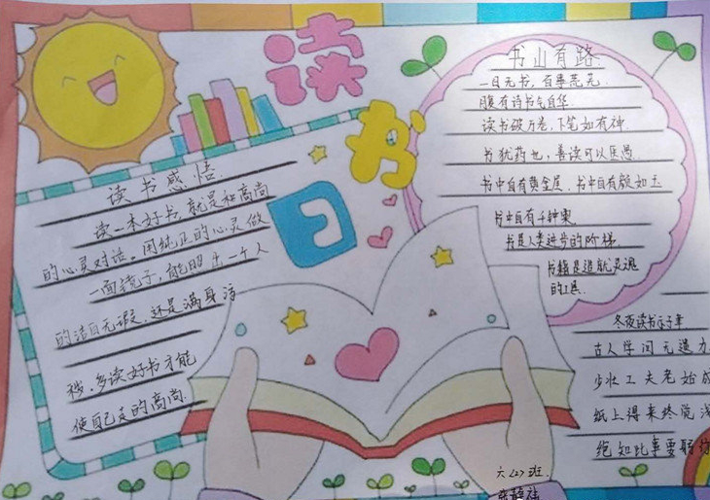 读
书
日
读书感悟
读一本好书,就是和高尚
的心灵对话。用纯正的心灵做
一面镜子,能照出一个人
的洁白无瑕,还是满身污
秽。多读好书才能
使自己走的高尚
书山有路
一日无书,百事荒芜.
腹有诗书气自华
读书破万卷,下笔如有神.
书犹药也,善读可以医愚.
书中自有黄金屋、书中自有颜如玉
书中自有千钟粟
书是人类进步的阶梯.
书籍是造就灵魂
的工具.
冬夜读书示子聿
古人学问无遗力
少壮工夫老始成
纸上得来终觉浅
绝知此事要躬
六(2)班